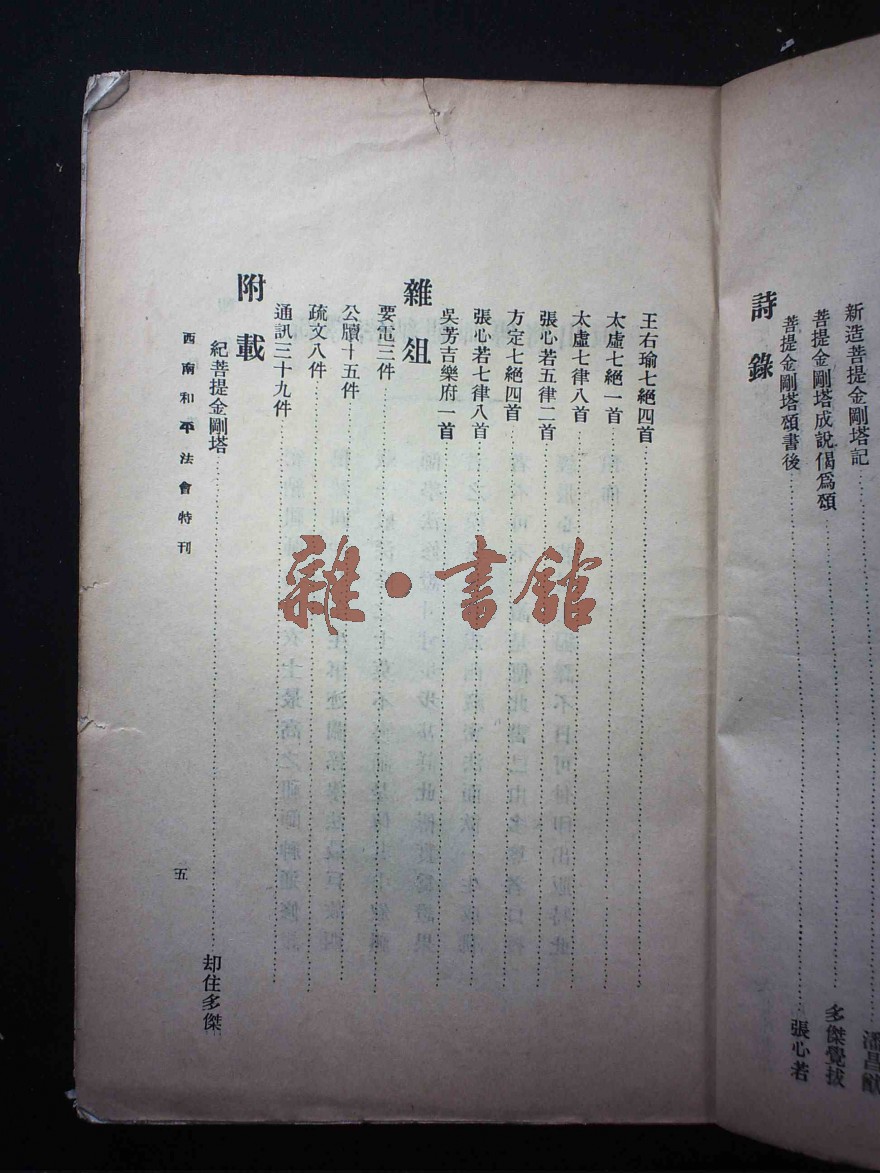 新造菩提金剛塔記……潘昌猷
菩提金剛塔成說偈爲頌……多傑覺拔
菩提金剛塔頌書後……張心若
詩錄
王右瑜七絕四首
太虛七絕一首
太虛七律八首
張心若五律二首
方定七絕四首
張心若七律八首
吳芳吉樂府一首
雜俎
要電三件
公牘十五件
疏文八件
通訊三十九件
附載
紀菩提金剛塔……却住多傑
西南和平法會特刊
五
雜·書館